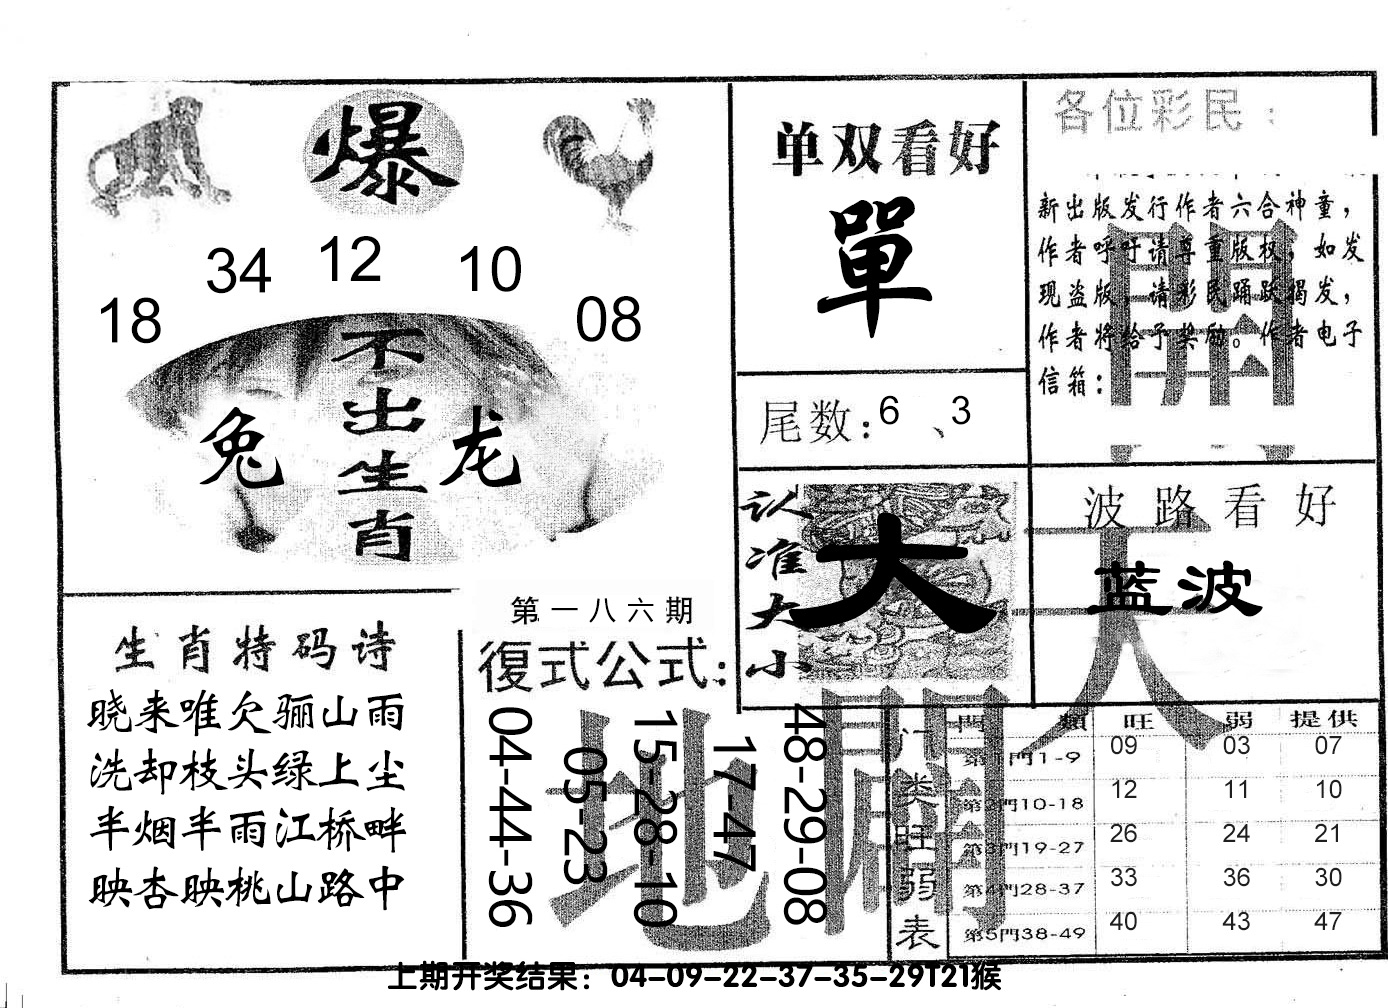 爆
34 12 10
18 08
不出生肖
兔 龙
单双看好
單
尾数：6、3
各位彩民：
新出版发行作者六合神童，
作者呼吁请尊重版权，如发
现盗版，请彩民踊跃揭发，
作者将给予奖励。作者电子
信箱：
開
认准大小
大
波路看好
蓝波
天
生肖特码诗
晓来唯欠骊山雨
洗却枝头绿上尘
半烟半雨江桥畔
映杏映桃山路中
第一八六期
復式公式：
04-44-36
05-23
15-28-10
17-47
48-29-08
地
门类旺弱表
門類 旺 弱 提供
第1門1-9 09 03 07
第2門10-18 12 11 10
第3門19-27 26 24 21
第4門28-37 33 36 30
第5門38-49 40 43 47
上期开奖结果：04-09-22-37-35-29T21猴